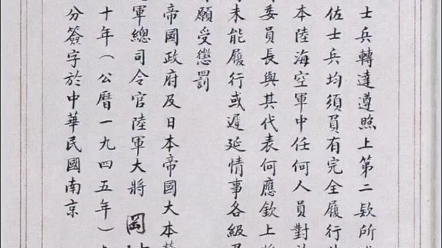 士兵轉達遵照上第二欵所
佐士兵均須負有完全履行
本陸海空軍中任何人員對於
委員長與其代表何應欽上將
未能履行或遲延情事各級
願受懲罰
帝国政府及日本帝國大本營
軍總司令官陸軍大將 岡
十年（公曆一九四五年）
分簽字於中華民國南京